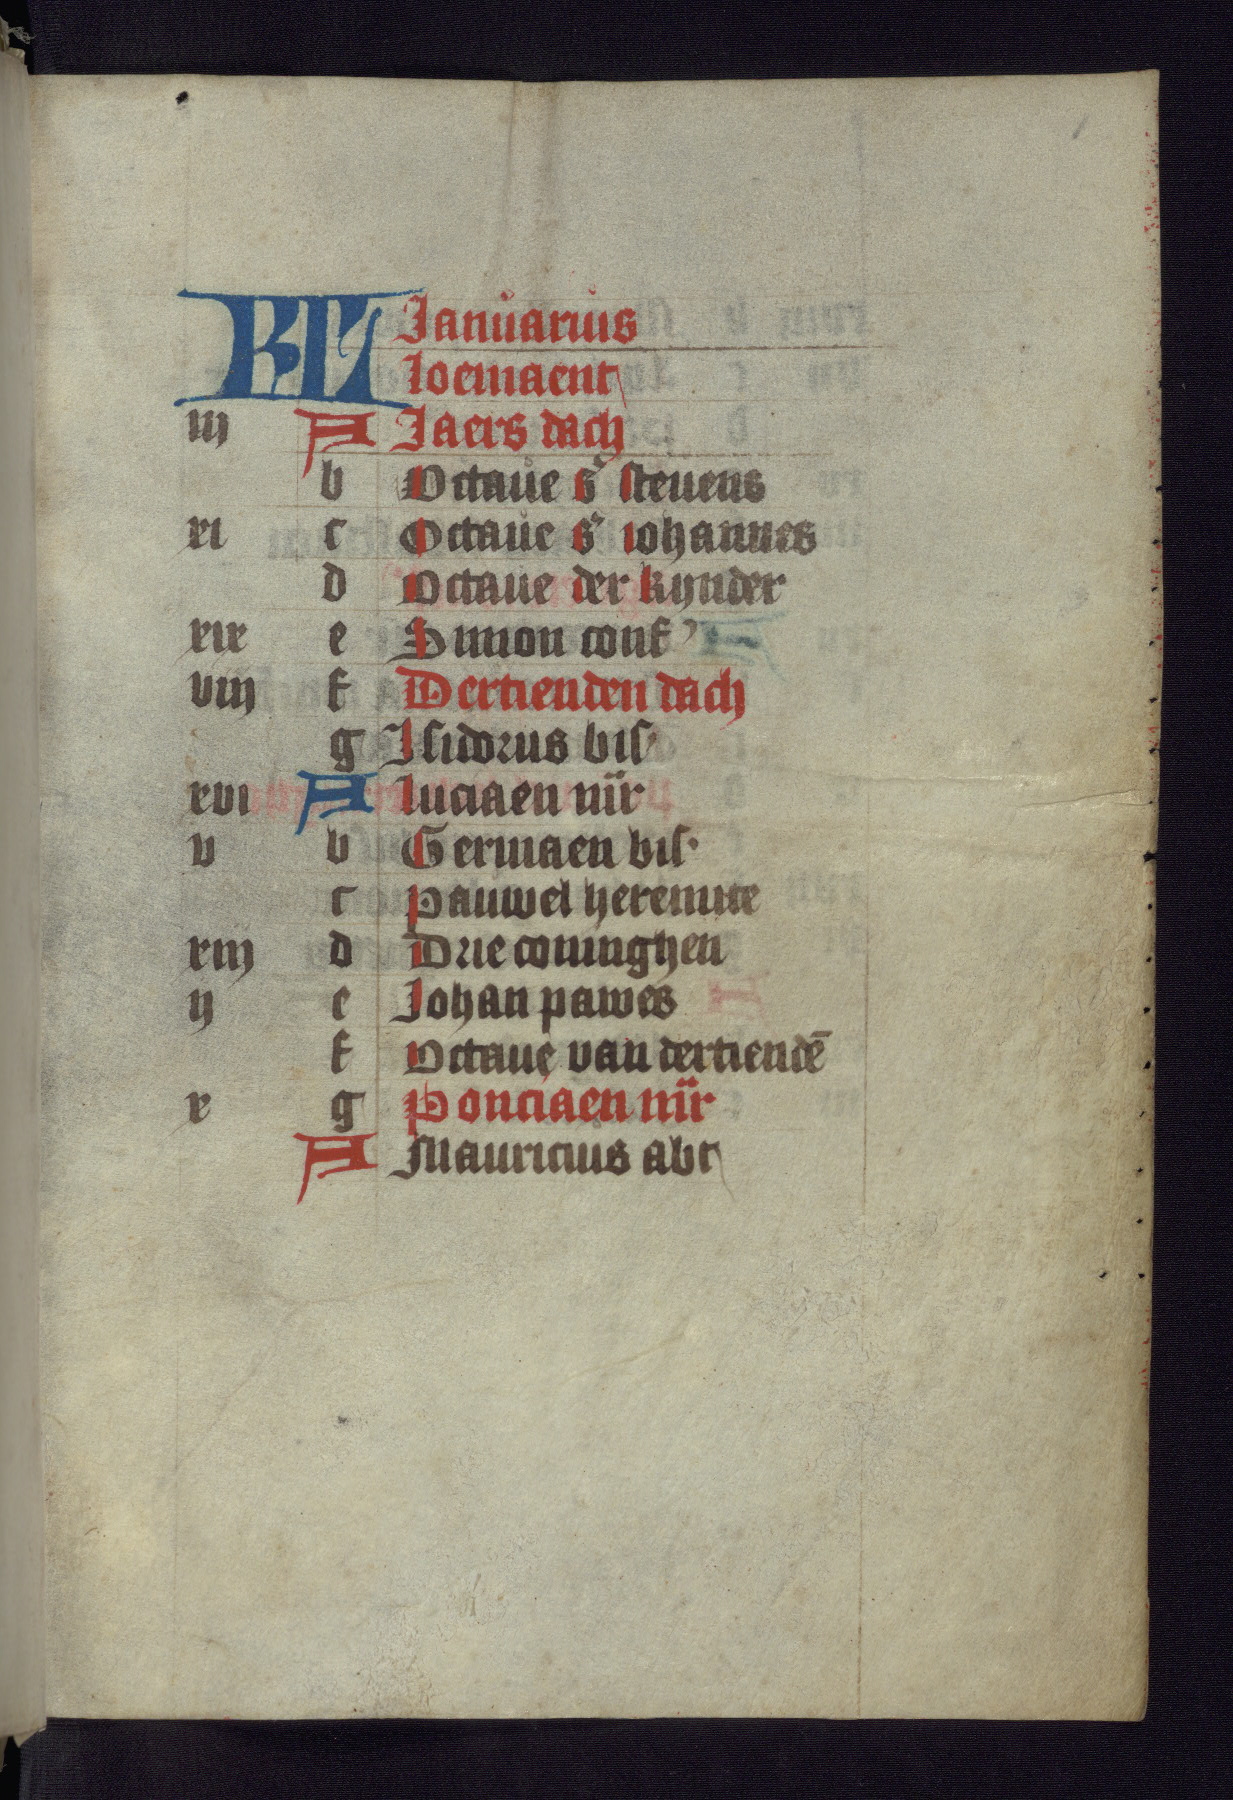 KL Januarius
Loemaent
iij A Jaers dach
b Octaue s' steuens
xi c Octaue s' iohannes
d Octaue der kynder
xix e Simon conf'
viij f Dertienden dach
g Isidorus bis'
xvi A Luciaen mr̄
v b Germaen bis·
c Pauwel heremite
xiij d Drie coninghen
ij e Johan pawes
f Octaue van dertiendē
x g Ponciaen mr̄
A Mauricius abt